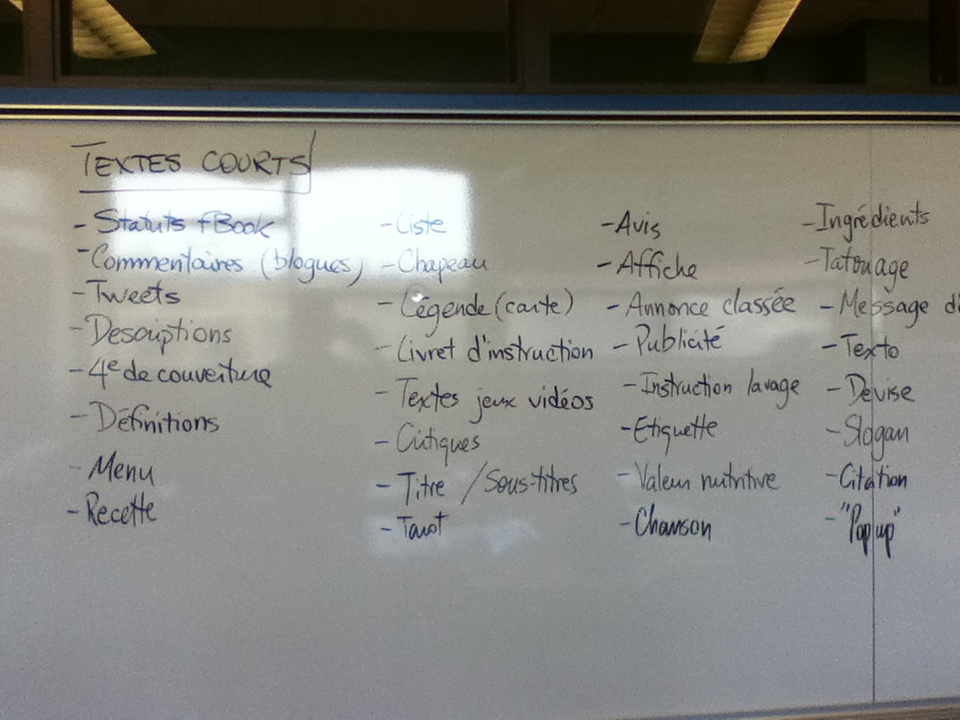 TEXTES COURTS
- Statuts fBook
- Commentaires (blogues)
- Tweets
- Descriptions
- 4e de couverture
- Définitions
- Menu
- Recette
- Liste
- Chapeau
- Légende (carte)
- Livret d'instruction
- Textes jeux vidéos
- Critiques
- Titre / Sous-titres
- Tarot
- Avis
- Affiche
- Annonce classée
- Publicité
- Instruction lavage
- Etiquette
- Valeur nutritive
- Chanson
- Ingrédients
- Tatouage
- Message
- Texto
- Devise
- Slogan
- Citation
- "Pop up"